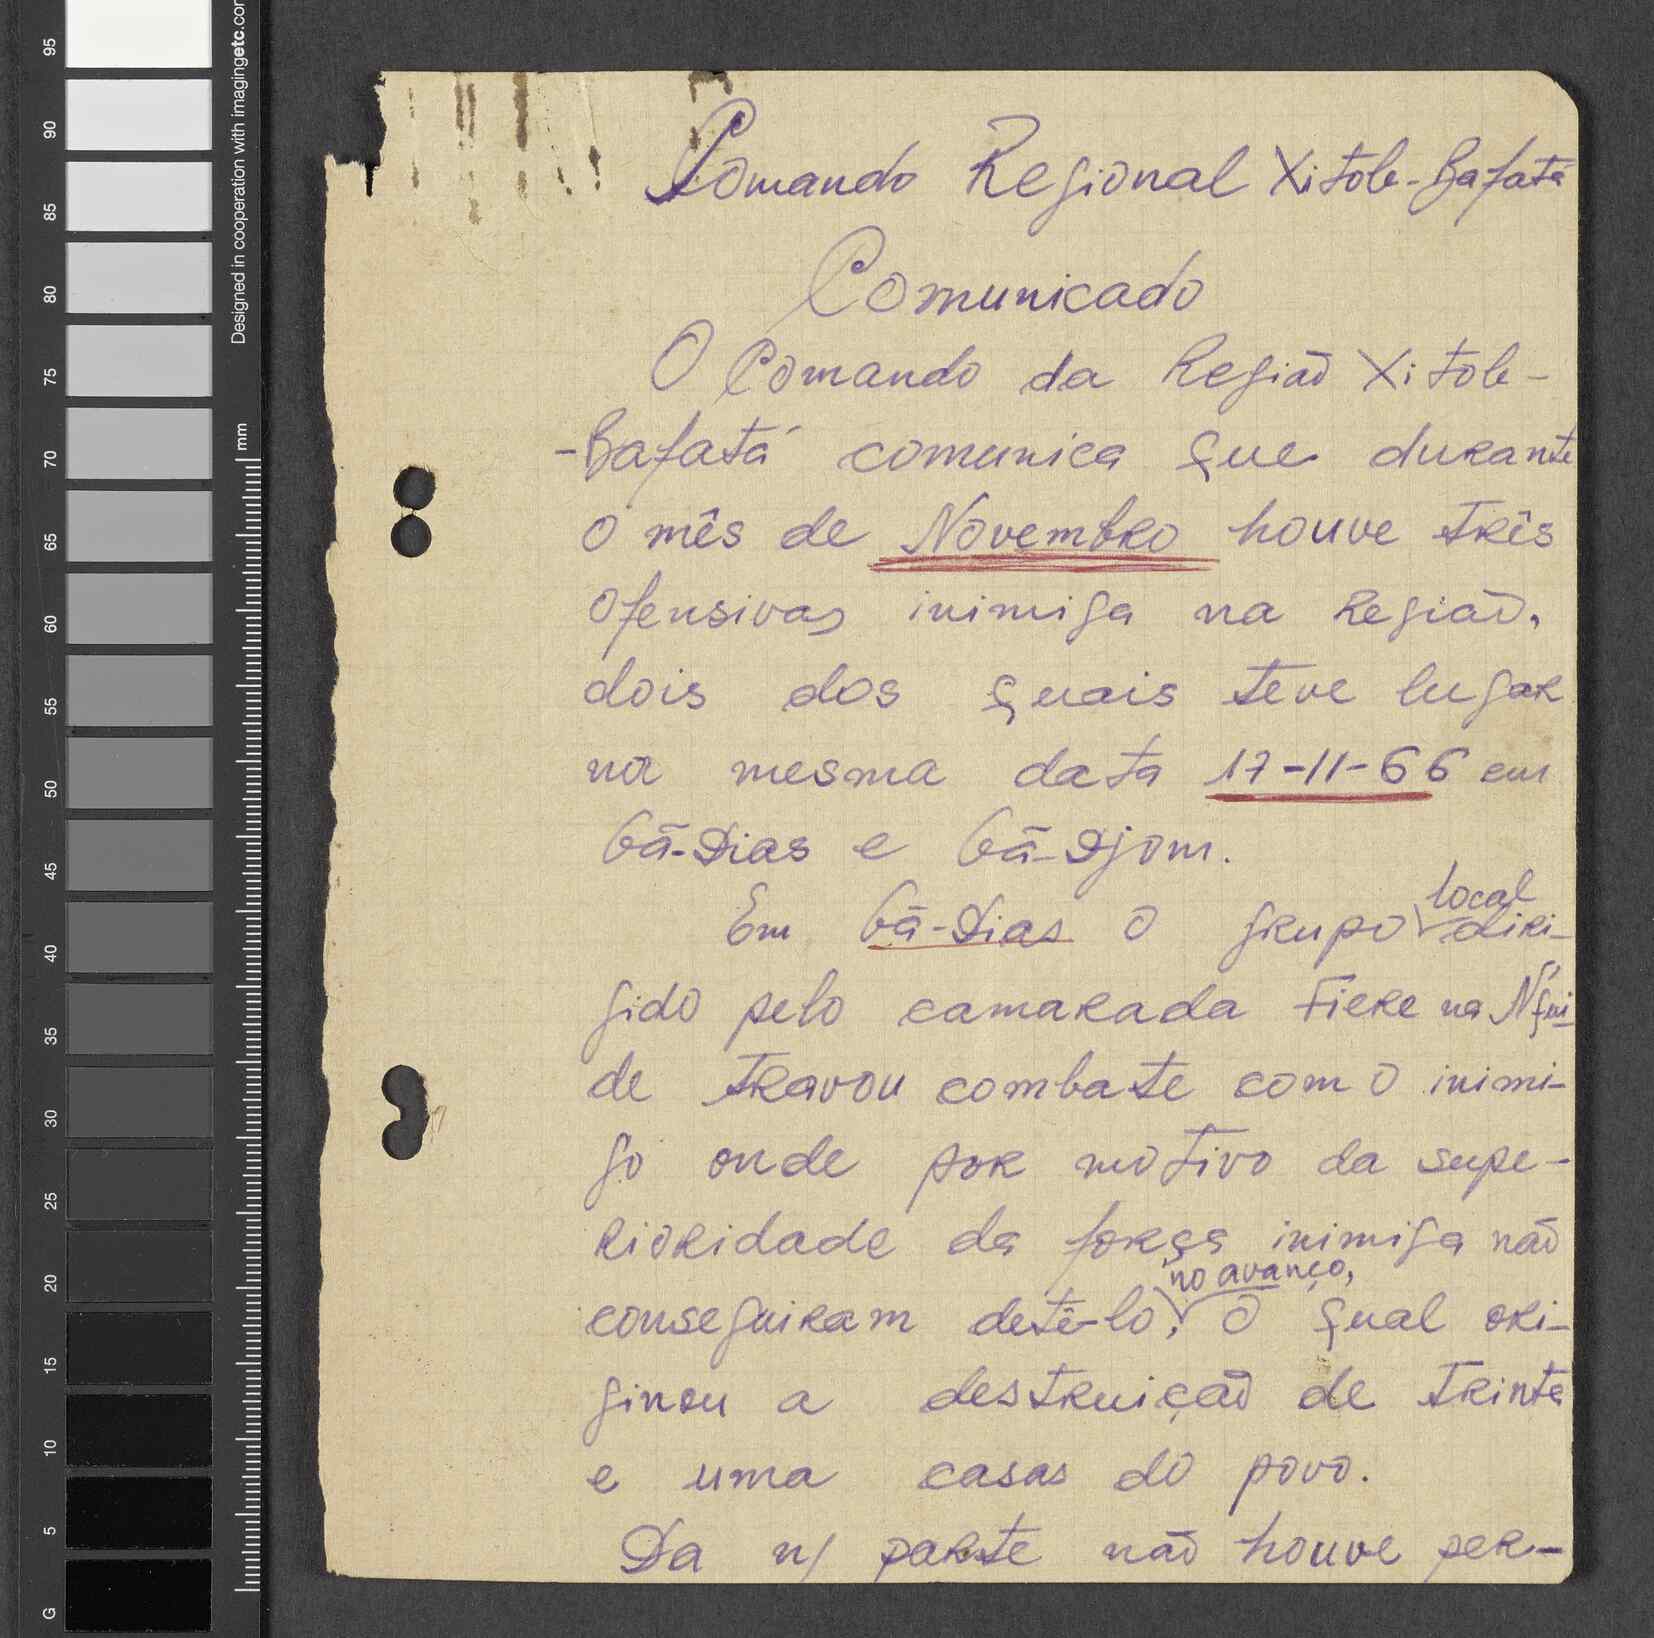 Comando Regional Xitole-Bafatá
Comunicado
O Comando da Região Xitole-
-Bafatá comunica que durante
o mês de Novembro houve três
ofensivas inimiga na Região,
dois dos quais teve lugar
na mesma data 17-11-66 em
Gã-Dias e Gã-Djom.
Em Gã-Dias o grupo local diri-
gido pelo camarada Fiere na N'qui-
de travou combate com o inimi-
go onde por motivo da supe-
rioridade da força inimiga não
conseguiram detê-lo no avanço, o qual ori-
ginou a destruição de trinta
e uma casas do povo.
Da n/ parte não houve per-
95
90
85
80
75
70
65
60
55
50
45
40
35
30
25
20
15
10
5
G
mm
Designed in cooperation with imagingetc.com